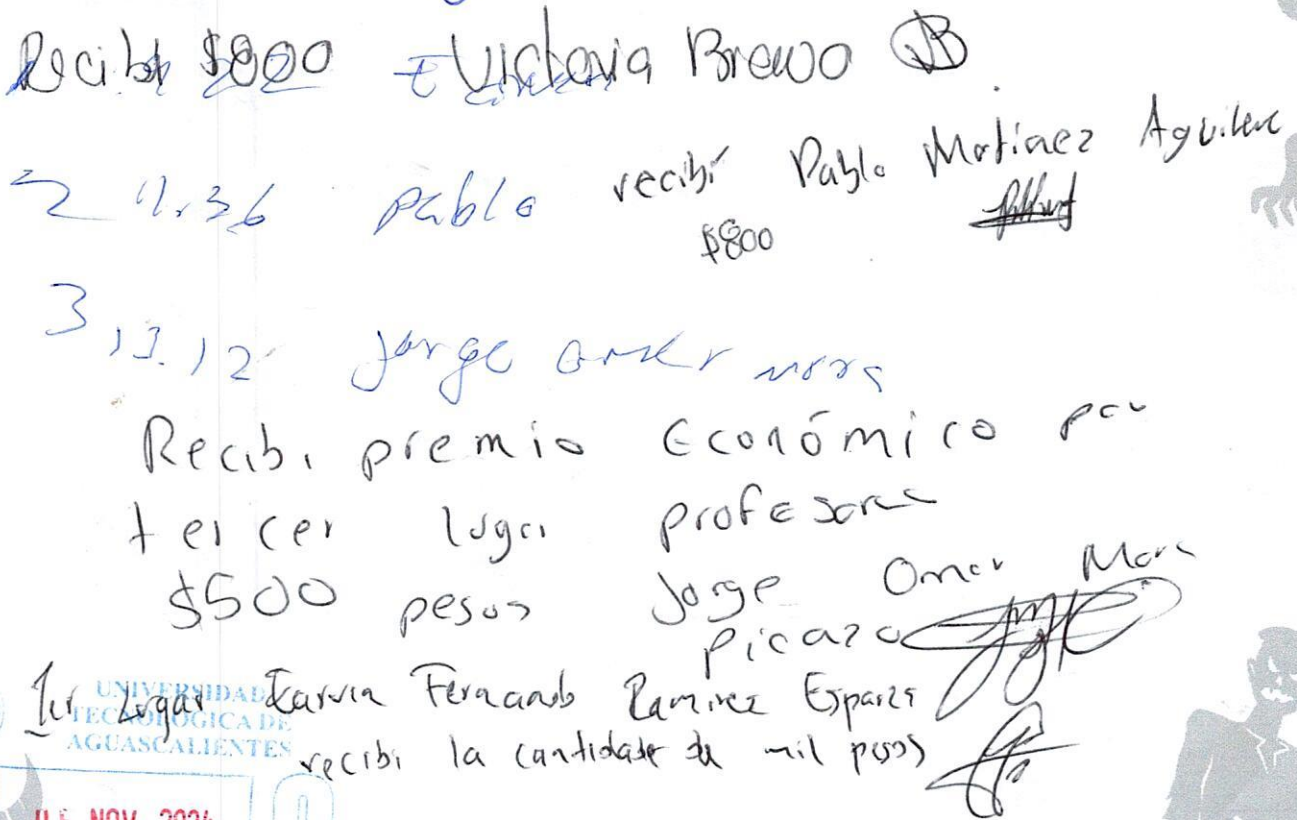 Recibí $800 Victoria Bravo
2 11.36 Pablo recibí Pablo Martinez Aguilera
$800
3 13.12 Jorge omar mora
Recibi premio Económico por
tercer lugar profesores
$500 pesos Jorge Omar Mora
Picazo
1er Lugar Fernando Ramirez Esparza
recibi la cantidade de mil pesos
UNIVERSIDAD
TECNOLÓGICA DE
AGUASCALIENTES
NOV